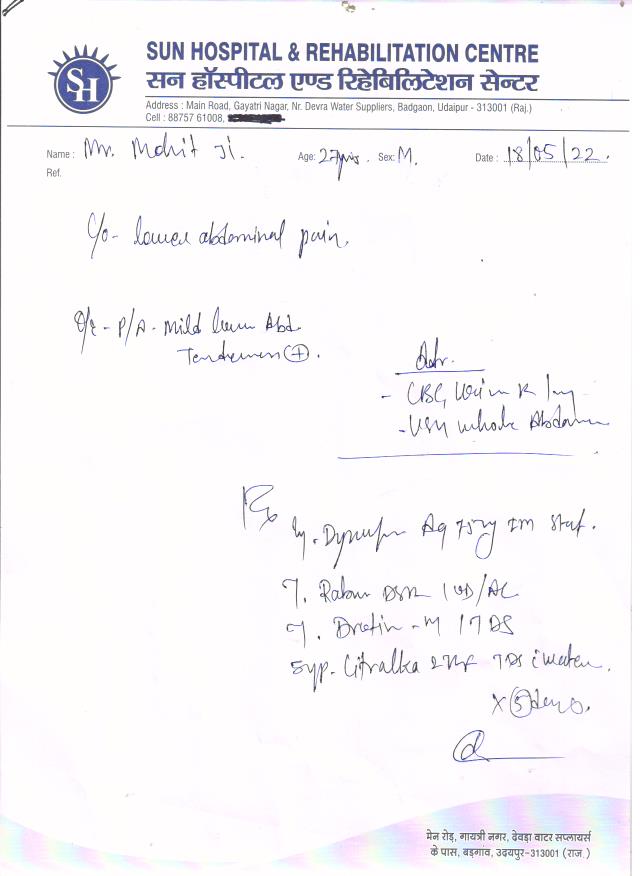 SUN HOSPITAL & REHABILITATION CENTRE
सन हॉस्पीटल एण्ड रिहेबिलिटेशन सेन्टर
SH
Address : Main Road, Gayatri Nagar, Nr. Devra Water Suppliers, Badgaon, Udaipur - 313001 (Raj.)
Cell : 88757 61008,
Name : Mr. Mohit Ji. Age: 27yrs. Sex: M. Date : 18/05/22.
Ref.
C/o - lower abdominal pain.
O/E - P/A - Mild lower Abd.
Tenderness (+).
Adv.
- CBC, Urine R
- USG whole Abdomen
Rx
Inj. Dynapar Aq 75mg IM stat.
T. DSR 1 OD/AC
T. - M 1 TDS
Syp. Citralka 2 TSF TDS c water.
X (5) days.
मेन रोड़, गायत्री नगर, देवड़ा वाटर सप्लायर्स
के पास, बड़गांव, उदयपुर-313001 (राज.)